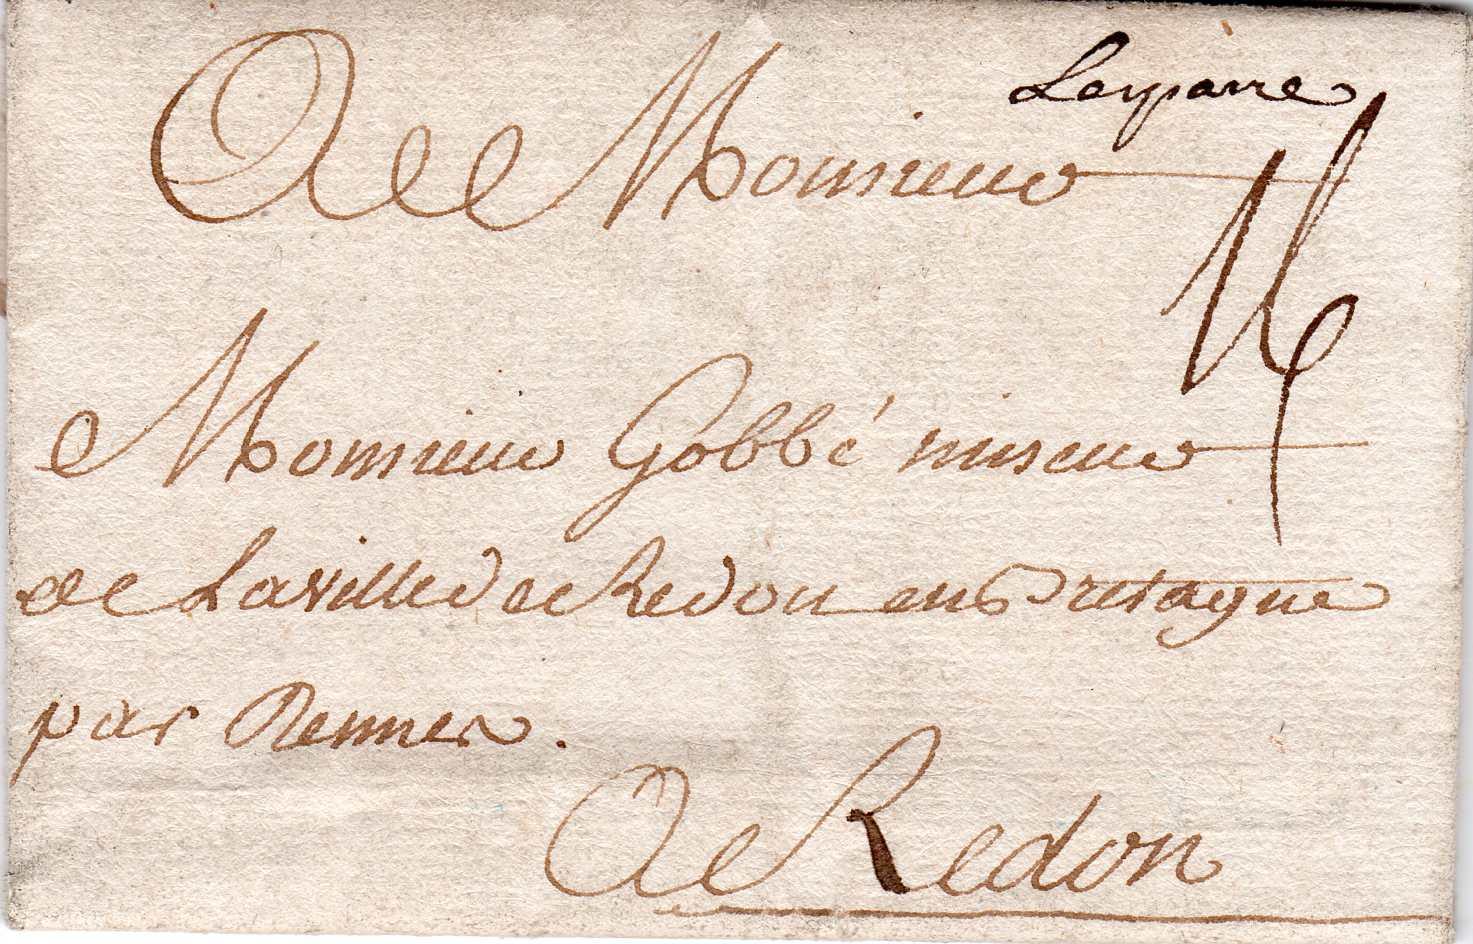 Lesparre
A Monsieur
Monsieur Gobbé miseur
de La ville de Redon en Bretagne
par Rennes.
A Redon